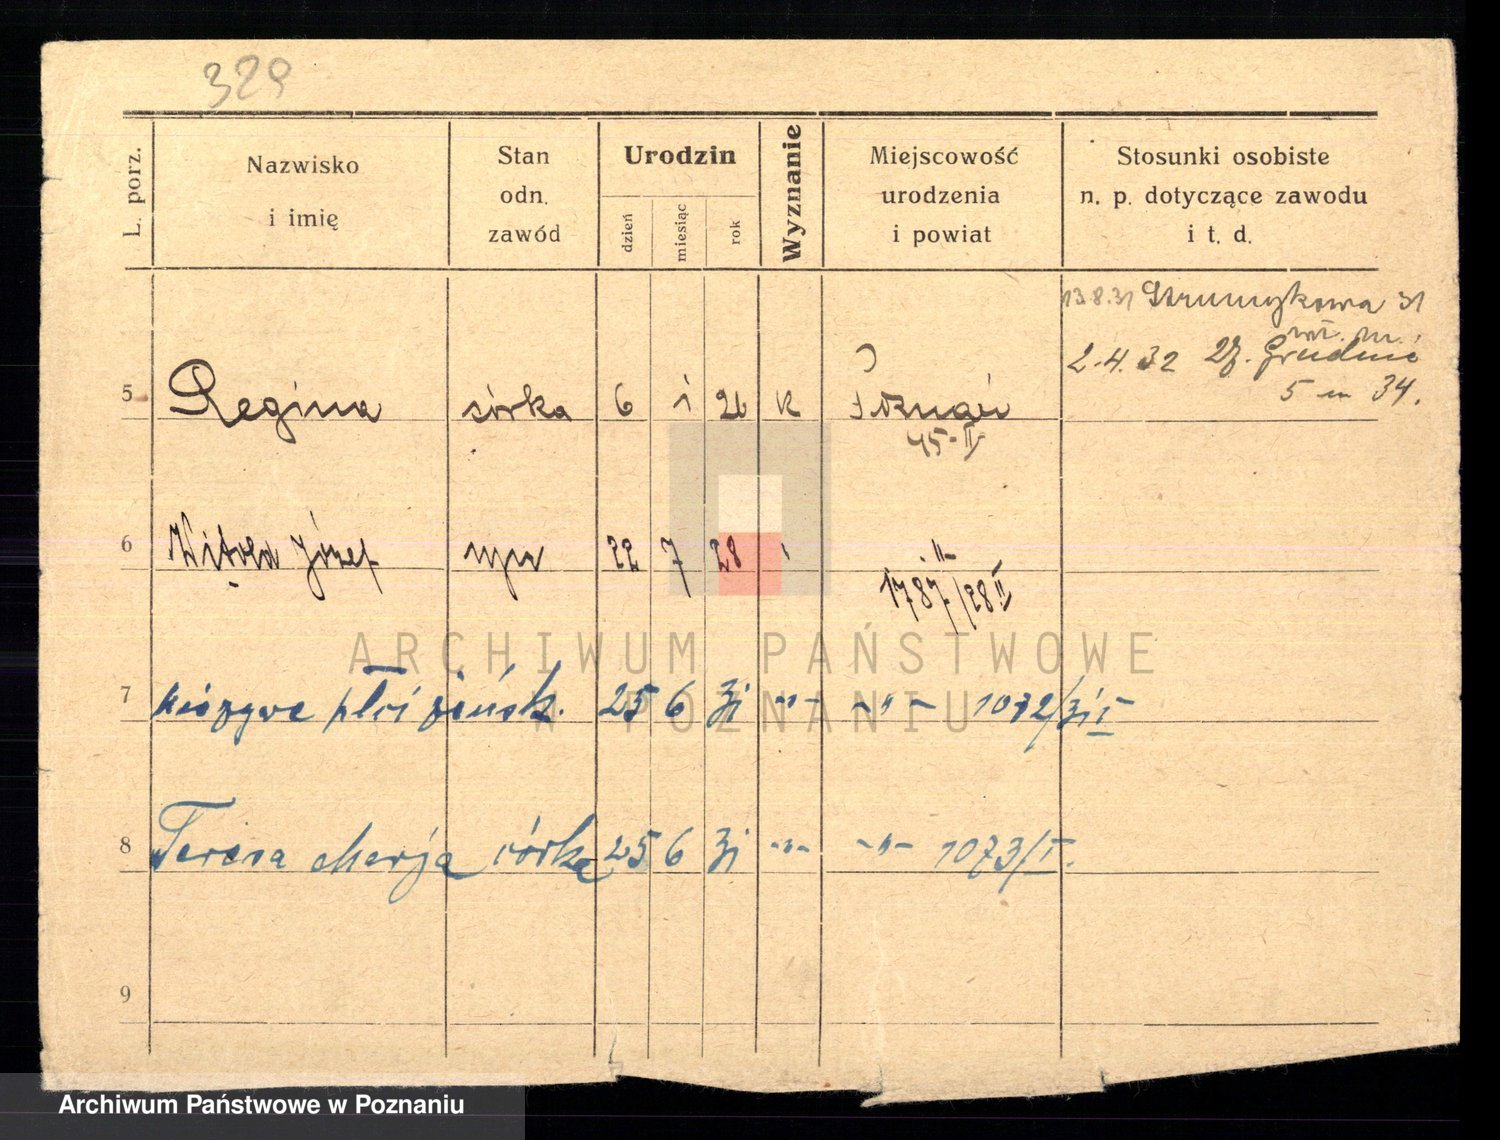 329
L. porz.
Nazwisko
i imię
Stan
odn.
zawód
Urodzin
dzień
miesiąc
rok
Wyznanie
Miejscowość
urodzenia
i powiat
Stosunki osobiste
n. p. dotyczące zawodu
i t. d.
13.8.31 Strumykowa 31
2.4.32 27. Grudnia
5 m 34.
5 Regina córka 6 1 26 K Poznań
45-II
6 Witold Józef syn 22 7 28 -"-
1787/28 II
7 nieżywe płci żeńsk. 25 6 31 -"- -"- 1072/31 I
8 Teresa Marja córka 25 6 31 -"- -"- 1073/I.
9
ARCHIWUM PAŃSTWOWE
W POZNANIU
Archiwum Państwowe w Poznaniu